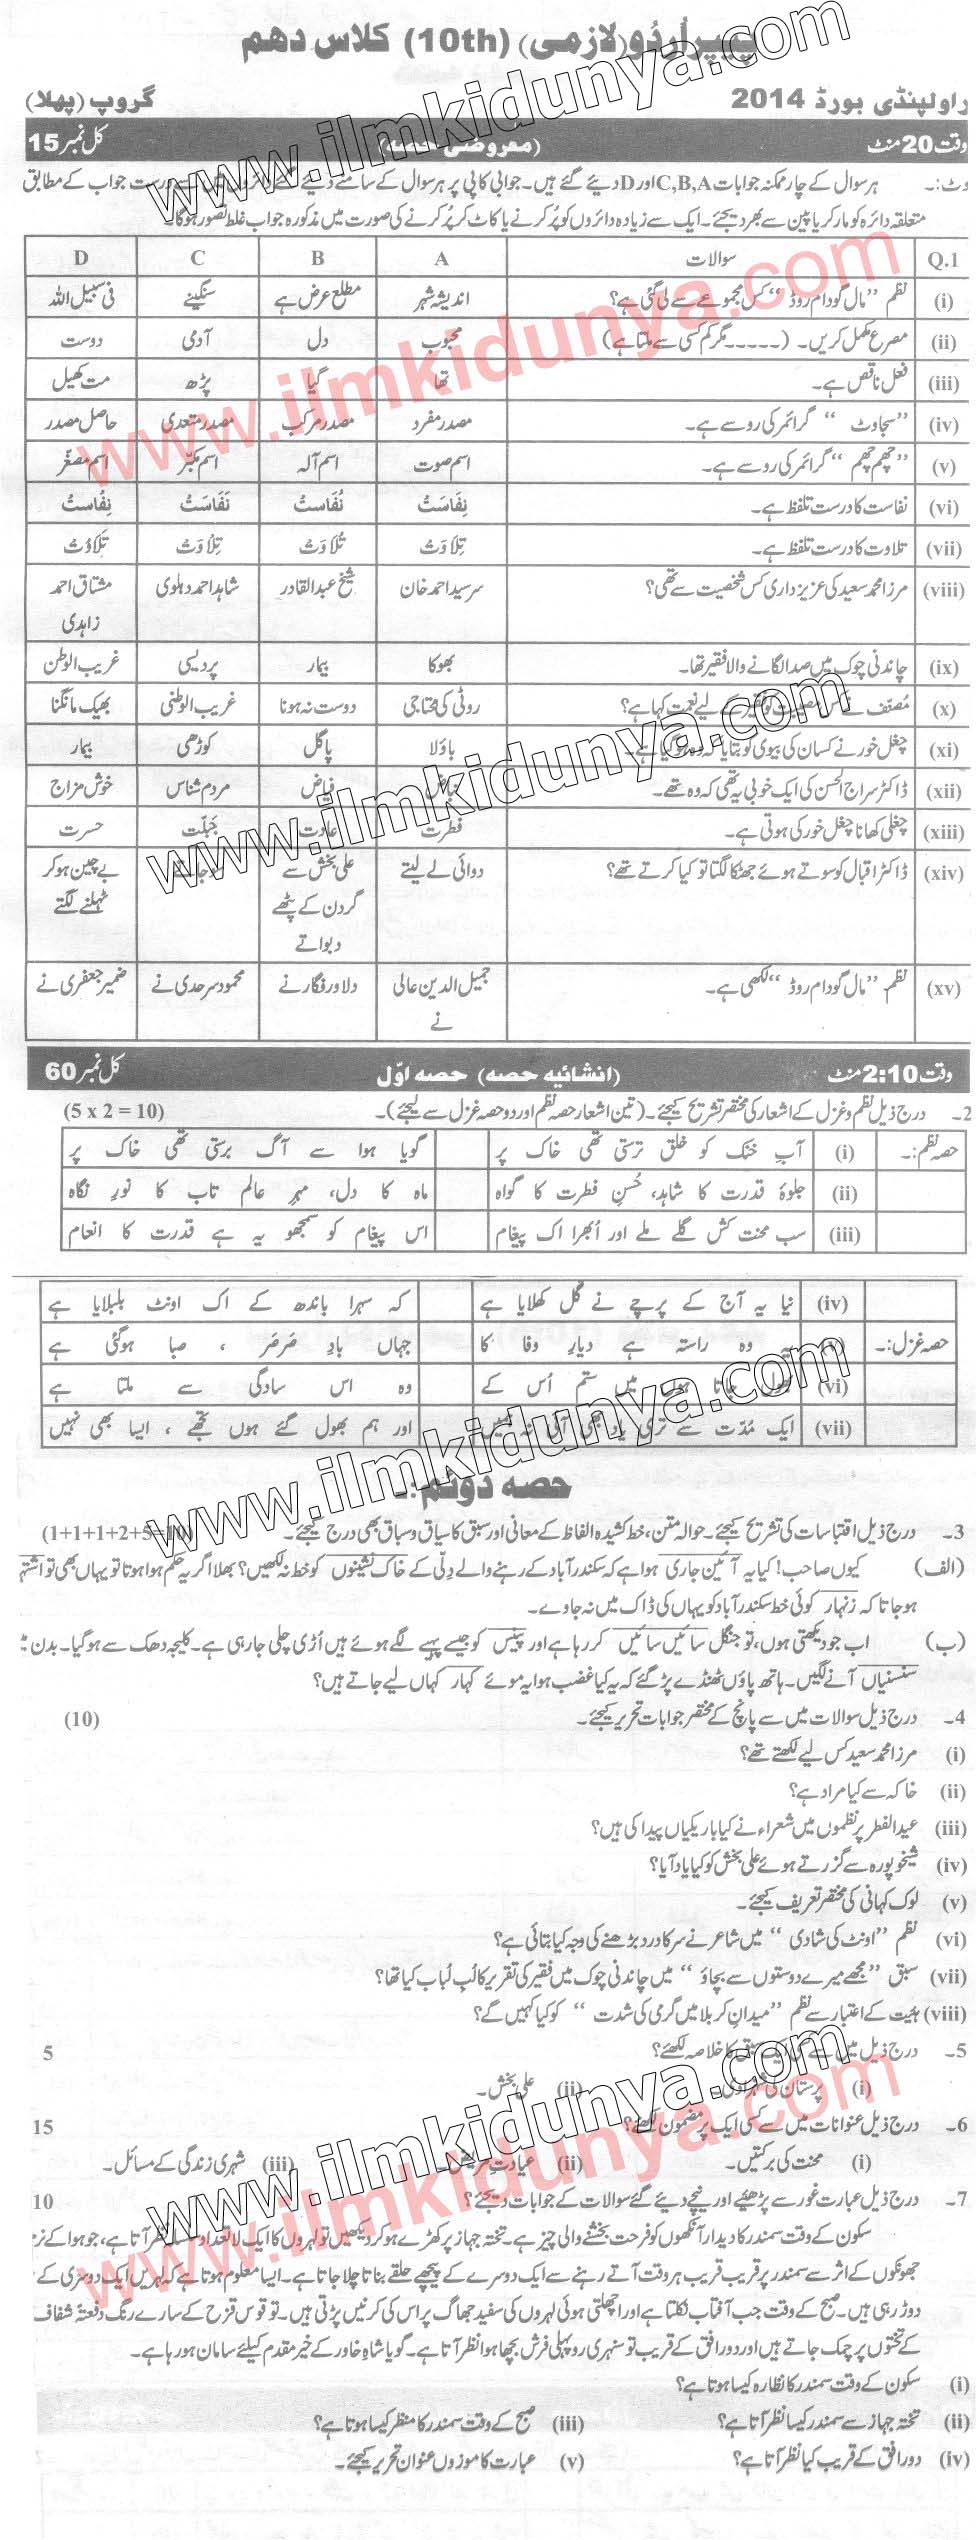 پیپر اُردُو (لازمی) (10th) کلاس دھم
راولپنڈی بورڈ 2014 گروپ (پہلا)
وقت 20 منٹ (معروضی حصہ) کل نمبر 15
وٹ:۔ ہر سوال کے چار ممکنہ جوابات C,B,A اور D دیئے گئے ہیں۔ جوابی کاپی پر ہر سوال کے سامنے دیئے گئے دائروں میں سے درست جواب کے مطابق
متعلقہ دائرہ کو مارکر یا پین سے بھر دیجئے۔ ایک سے زیادہ دائروں کو پُر کرنے یا کاٹ کر پُر کرنے کی صورت میں مذکورہ جواب غلط تصور ہوگا۔
Q.1 سوالات A B C D
(i) نظم ’’مال گودام روڈ‘‘ کس مجموعے سے لی گئی ہے؟ اندیشہ شہر مطلع عرض ہے سنگینے فی سبیل اللہ
(ii) مصرع مکمل کریں۔ (۔۔۔۔۔ مگر کم کسی سے ملتا ہے) محبوب دل آدمی دوست
(iii) فعل ناقص ہے۔ تھا گیا پڑھ مت کھیل
(iv) ’’سجاوٹ‘‘ گرائمر کی رو سے ہے۔ مصدر مفرد مصدر مرکب مصدر متعدی حاصل مصدر
(v) ’’چھم چھم‘‘ گرائمر کی رو سے ہے۔ اسم صوت اسم آلہ اسم مکبّر اسم مصغّر
(vi) نفاست کا درست تلفظ ہے۔ نِفَاسَتْ نُفَاسَت نَفَاسَتْ نِفُاسَتْ
(vii) تلاوت کا درست تلفظ ہے۔ تِلَاوَتْ تُلَاوَتْ تِلُاوَتْ تِلَاوُتْ
(viii) مرزا محمد سعید کی عزیز داری کس شخصیت سے تھی؟ سرسید احمد خان شیخ عبدالقادر شاہد احمد دہلوی مشتاق احمد
زاہدی
(ix) چاندنی چوک میں صدا لگانے والا فقیر تھا۔ بھوکا بیمار پردیسی غریب الوطن
(x) مُصنّف نے کس مصیبت کو فقیر کے لیے نعمت کہا ہے؟ روٹی کی محتاجی دوست نہ ہونا غریب الوطنی بھیک مانگنا
(xi) چغل خور نے کسان کی بیوی کو بتایا کہ وہ ہوگیا ہے۔ باؤلا پاگل کوڑھی بیمار
(xii) ڈاکٹر سراج الحسن کی ایک خوبی یہ تھی کہ وہ تھے۔ نباض فیاض مردم شناس خوش مزاج
(xiii) چغلی کھانا چغل خور کی ہوتی ہے۔ فطرت عادت جبلّت حسرت
(xiv) ڈاکٹر اقبال کو سوتے ہوئے جھٹکا لگتا تو کیا کرتے تھے؟ دوائی لے لیتے علی بخش سے بے چین ہوکر
گردن کے پٹھے ٹہلنے لگتے
دبواتے
(xv) نظم ’’مال گودام روڈ‘‘ لکھی ہے۔ جمیل الدین عالی دلاور فگار نے محمود سرحدی نے ضمیر جعفری نے
نے
وقت 2:10 منٹ (انشائیہ حصہ) حصہ اوّل کل نمبر 60
2۔ درج ذیل نظم و غزل کے اشعار کی مختصر تشریح کیجئے۔ (تین اشعار حصہ نظم اور دو حصہ غزل سے لیجئے)۔ (5 x 2 = 10)
حصہ نظم:۔ (i) آب خنک کو خلق ترستی تھی خاک پر گویا ہوا سے آگ برستی تھی خاک پر
(ii) جلوۂ قدرت کا شاہد، حُسنِ فطرت کا گواہ ماہ کا دل، مہرِ عالم تاب کا نورِ نگاہ
(iii) سب محنت کش گلے ملے اور اُبھرا اک پیغام اس پیغام کو سمجھو یہ ہے قدرت کا انعام
(iv) نیا یہ آج کے پرچے نے گل کھلایا ہے کہ سہرا باندھ کے اک اونٹ بلبلایا ہے
حصہ غزل:۔ وہ راستہ ہے دیار وفا کا جہاں بادِ صَرصَر، صبا ہوگئی ہے
(vi) بھول جاتا ہوں میں ستم اُس کے وہ اس سادگی سے ملتا ہے
(vii) ایک مدّت سے تری یاد بھی آئی نہ ہمیں اور ہم بھول گئے ہوں تجھے، ایسا بھی نہیں
حصہ دوئم:۔
3۔ درج ذیل اقتباسات کی تشریح کیجئے۔ حوالہ متن، خط کشیدہ الفاظ کے معانی اور سبق کا سیاق و سباق بھی درج کیجئے۔ (1+1+1+2+5=10)
(الف) کیوں صاحب! کیا یہ آئین جاری ہوا ہے کہ سکندر آباد کے رہنے والے دِلّی کے خاک نشینوں کو خط نہ لکھیں؟ بھلا اگر یہ حکم ہوا ہوتا تو یہاں بھی تو اشتہ
ہو جاتا کہ زنہار کوئی خط سکندر آباد کو یہاں کی ڈاک میں نہ جاوے۔
(ب) اب جو دیکھتی ہوں، تو جنگل سائیں سائیں کر رہا ہے اور پینس کو جیسے پہیے لگے ہوئے ہیں اُڑی چلی جا رہی ہے۔ کلیجہ دھک سے ہو گیا۔ بدن
سنسنیاں آنے لگیں۔ ہاتھ پاؤں ٹھنڈے پڑ گئے کہ یہ کیا غضب ہوا یہ موئے کہار کہاں لیے جاتے ہیں؟
4۔ درج ذیل سوالات میں سے پانچ کے مختصر جوابات تحریر کیجئے۔ (10)
(i) مرزا محمد سعید کس لیے لکھتے تھے؟
(ii) خاکہ سے کیا مراد ہے؟
(iii) عید الفطر پر نظموں میں شعراء نے کیا باریکیاں پیدا کی ہیں؟
(iv) شیخوپورہ سے گزرتے ہوئے علی بخش کو کیا یاد آیا؟
(v) لوک کہانی کی مختصر تعریف کیجئے۔
(vi) نظم ’’اونٹ کی شادی‘‘ میں شاعر نے سر کا درد بڑھنے کی وجہ کیا بتائی ہے؟
(vii) سبق ’’مجھے میرے دوستوں سے بچاؤ‘‘ میں چاندنی چوک میں فقیر کی تقریر کا لُبِ لُباب کیا تھا؟
(viii) ہیئت کے اعتبار سے نظم ’’میدان کربلا میں گرمی کی شدت‘‘ کو کیا کہیں گے؟
5۔ درج ذیل میں سے کسی ایک سبق کا خلاصہ لکھئے؟ 5
(i) پرستان کی شہزادی۔ (ii) علی بخش۔
6۔ درج ذیل عنوانات میں سے کسی ایک پر مضمون لکھئے؟ 15
(i) محنت کی برکتیں۔ (ii) عیادتِ مریض۔ (iii) شہری زندگی کے مسائل۔
7۔ درج ذیل عبارت غور سے پڑھیئے اور نیچے دیئے گئے سوالات کے جوابات دیجئے؟ 10
سکون کے وقت سمندر کا دیدار آنکھوں کو فرحت بخشنے والی چیز ہے۔ تختہ جہاز پر کھڑے ہو کر دیکھیں تو لہروں کا ایک لاتعداد سلسلہ نظر آتا ہے، جو ہوا کے نرم
جھونکوں کے اثر سے سمندر پر قریب قریب ہر وقت آتے رہنے سے ایک دوسرے کے پیچھے حلقے بناتا چلا جاتا ہے۔ ایسا معلوم ہوتا ہے کہ لہریں ایک دوسری کے
دوڑ رہی ہیں۔ صبح کے وقت جب آفتاب نکلتا ہے اور اچھلتی ہوئی لہروں کی سفید جھاگ پر اس کی کرنیں پڑتی ہیں۔ تو قوس قزح کے سارے رنگ دفعتہً شفاف
کے تختوں پر چمک جاتے ہیں اور دور افق کے قریب تو سنہری روپہلی فرش بچھا ہوا نظر آتا ہے۔ گویا شاہِ خاور کے خیر مقدم کیلئے سامان ہو رہا ہے۔
(i) سکون کے وقت سمندر کا نظارہ کیسا ہوتا ہے؟
(ii) تختہ جہاز سے سمندر کیسا نظر آتا ہے؟ (iii) صبح کے وقت سمندر کا منظر کیسا ہوتا ہے؟
(iv) دور افق کے قریب کیا نظر آتا ہے؟ (v) عبارت کا موزوں عنوان تحریر کیجئے۔
www.ilmkidunya.com
www.ilmkidunya.com
www.ilmkidunya.com
www.ilmkidunya.com
www.ilmkidunya.com
www.ilmkidunya.com